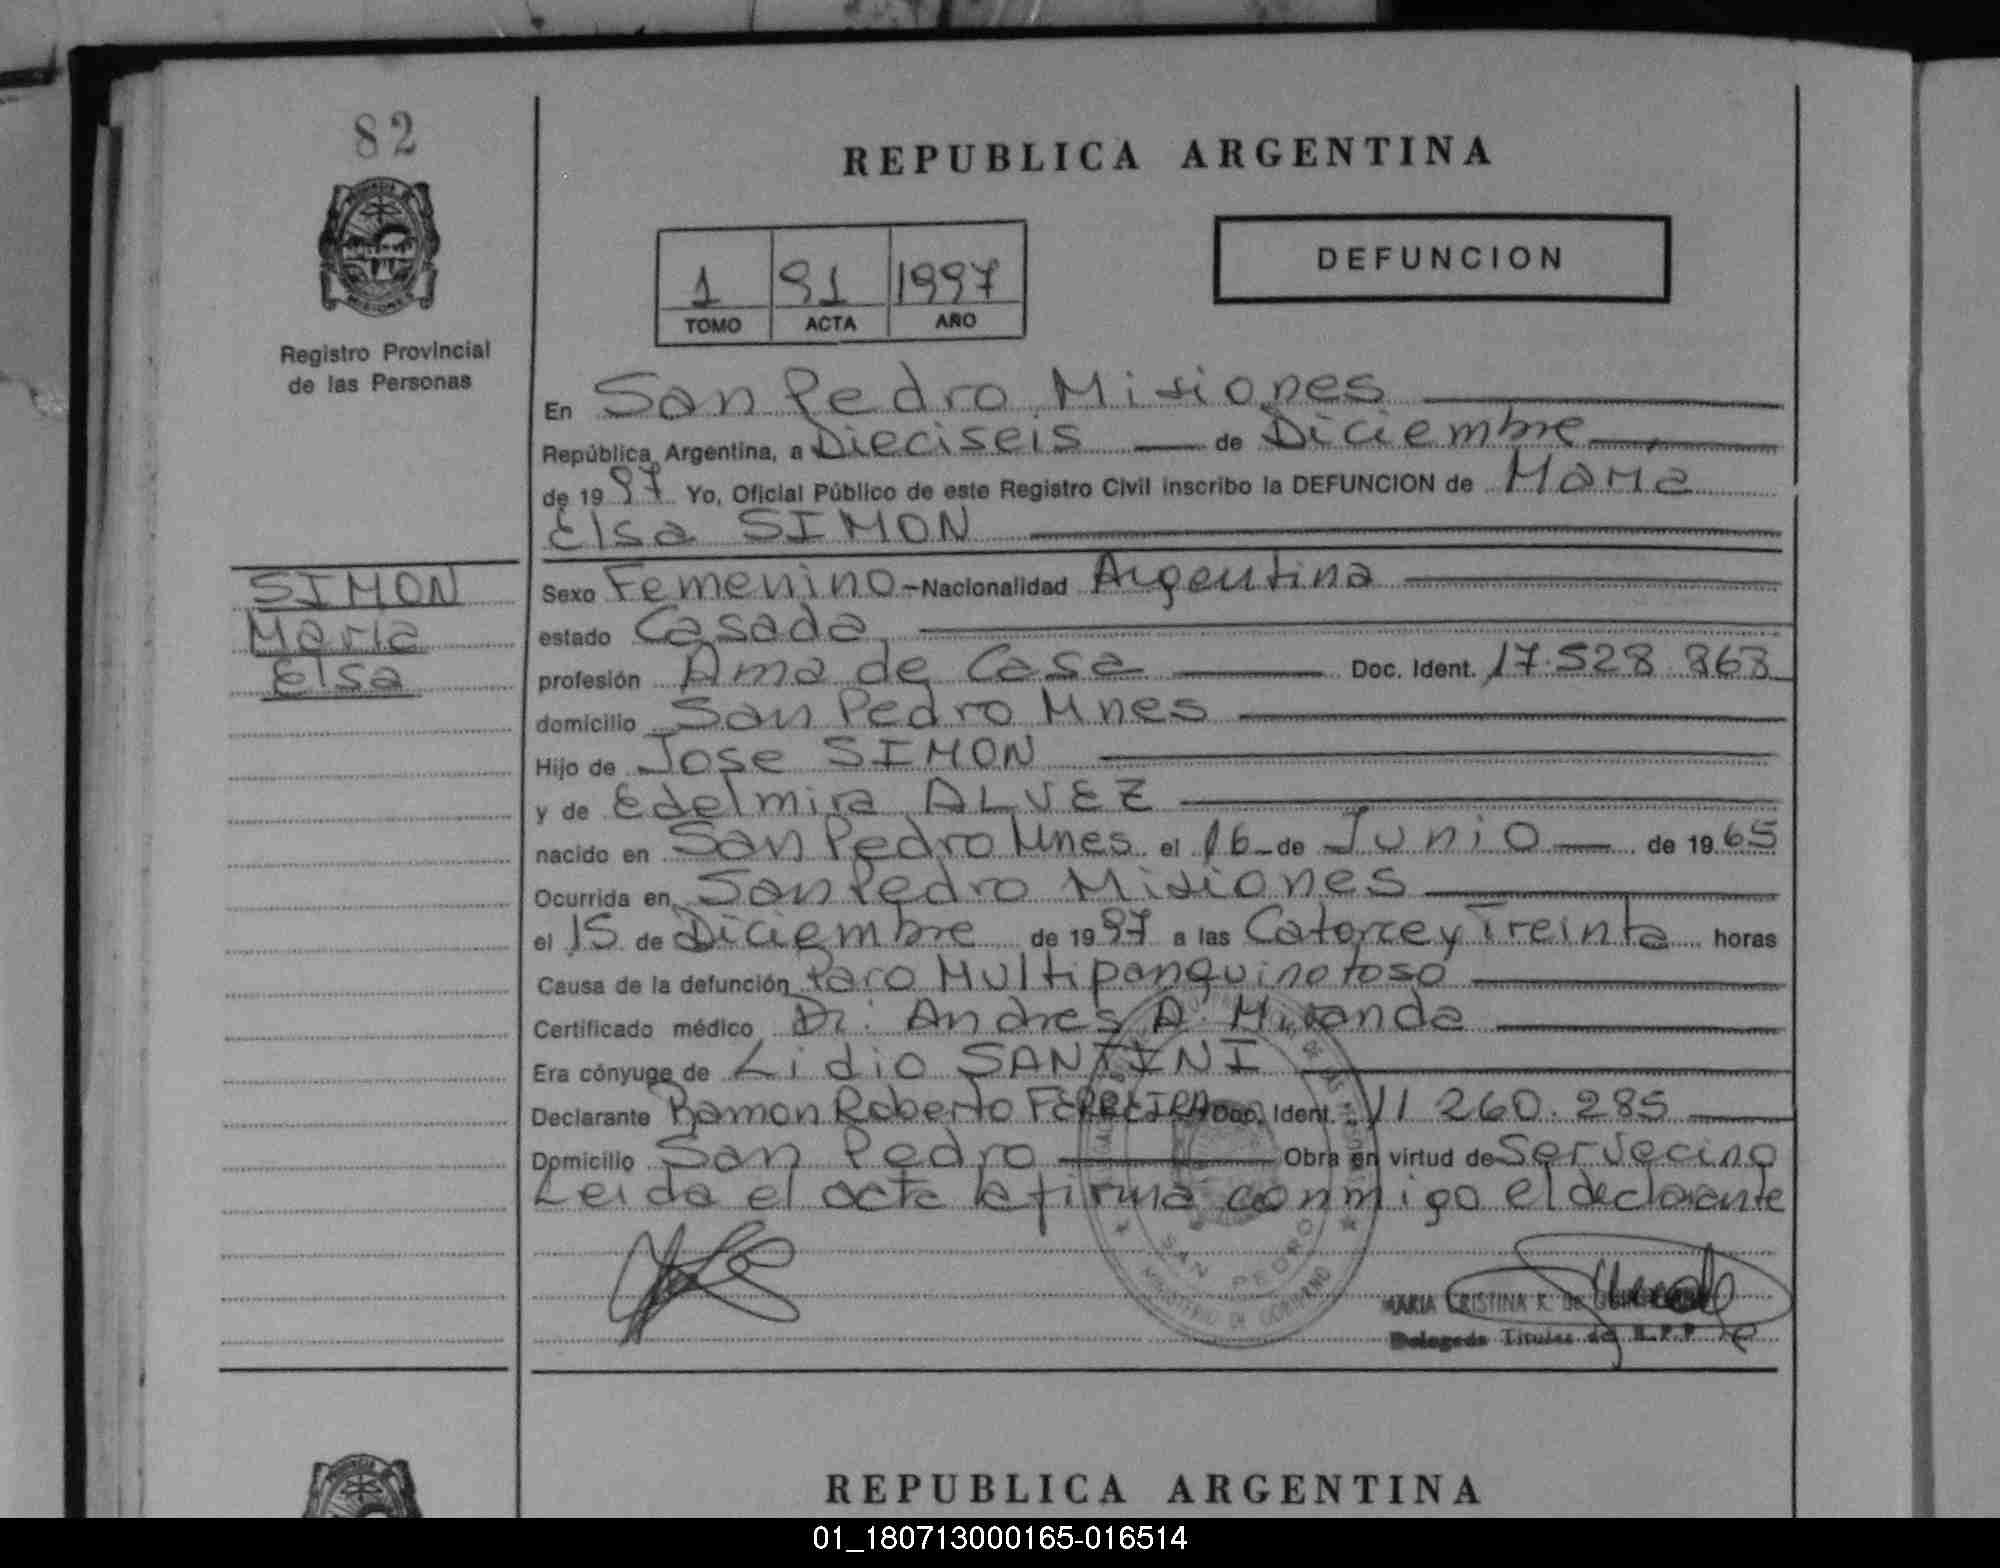 82
REPUBLICA ARGENTINA
1 91 1997
TOMO ACTA AÑO
DEFUNCION
Registro Provincial
de las Personas
En San Pedro Misiones
República Argentina, a Dieciseis de Diciembre
de 1997 Yo, Oficial Público de este Registro Civil inscribo la DEFUNCION de Maria
Elsa SIMON
SIMON
Maria
Elsa
Sexo Femenino - Nacionalidad Argentina
estado Casada
profesión Ama de Casa Doc. Ident. 17.528.863
domicilio San Pedro Mnes
Hijo de Jose SIMON
y de Edelmira ALVEZ
nacido en San Pedro Mnes el 16 de Junio de 1965
Ocurrida en San Pedro Misiones
el 15 de Diciembre de 1997 a las Catorce y Treinta horas
Causa de la defunción Paro Multipanquinotoso
Certificado médico Dr. Andres A. Miranda
Era cónyuge de Lidio SANTINI
Declarante Ramon Roberto FERREIRA Doc. Ident. 11 260.285
Domicilio San Pedro Obra en virtud de Servecino
Leida el acta la firma conmigo el declarante
SAN PEDRO
MINISTERIO DE GOBIERNO
MARIA CRISTINA K. DE
Delegada Titular de R.P.P
REPUBLICA ARGENTINA
01_180713000165-016514